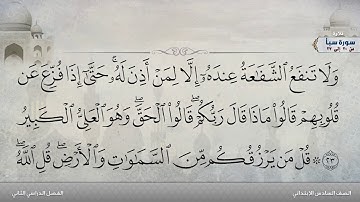 تلاوة
سورة سبأ
وَلَا تَنفَعُ ٱلشَّفَٰعَةُ عِندَهُۥٓ إِلَّا لِمَنْ أَذِنَ لَهُۥ ۚ حَتَّىٰٓ إِذَا فُزِّعَ عَن
قُلُوبِهِمْ قَالُوا۟ مَاذَا قَالَ رَبُّكُمْ ۖ قَالُوا۟ ٱلْحَقَّ ۖ وَهُوَ ٱلْعَلِىُّ ٱلْكَبِيرُ
٢٣ ۞ قُلْ مَن يَرْزُقُكُم مِّنَ ٱلسَّمَٰوَٰتِ وَٱلْأَرْضِ ۖ قُلِ ٱللَّهُ ۖ
الصف السادس الابتدائي
الفصل الدراسي الثاني